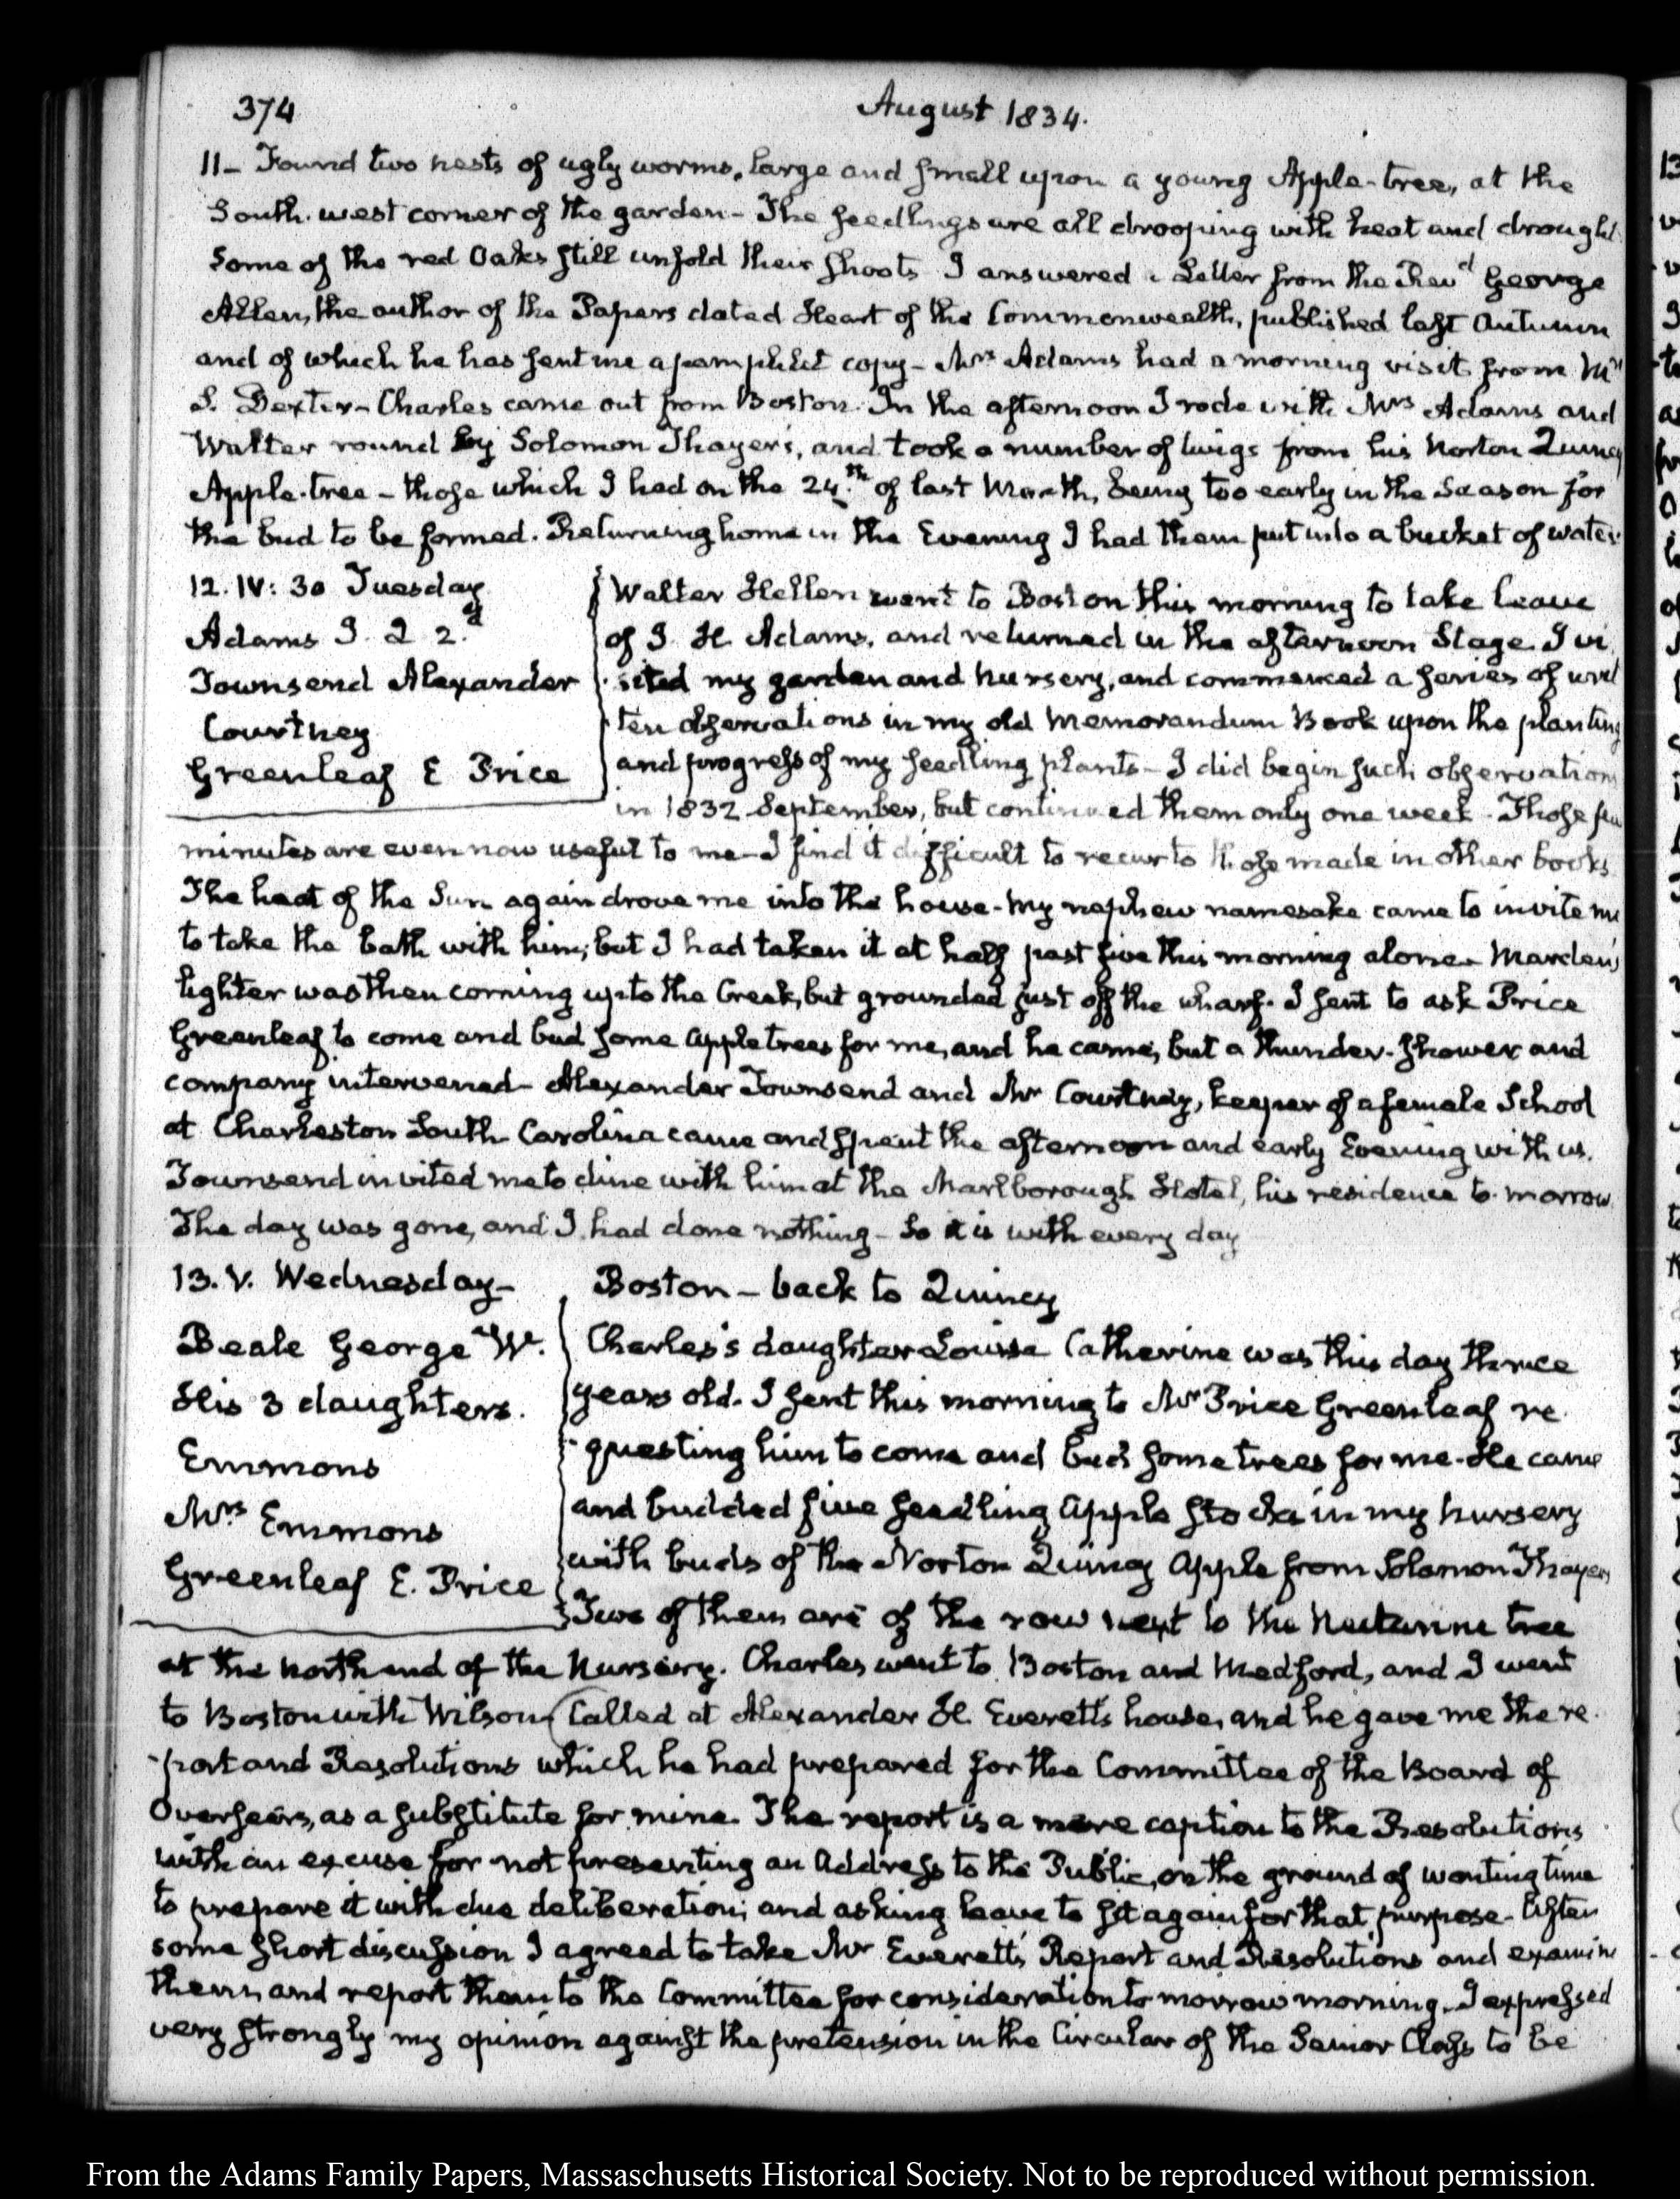 374
August 1834.
11 - Found two nests of ugly worms, large and small upon a young Apple-tree, at the
South-west corner of the garden - The seedlings are all drooping with heat and drought.
Some of the red Oaks still unfold their shoots I answered a Letter from the Revd George
Allen, the author of the Papers dated Heart of the Commonwealth, published last Autumn
and of which he has sent me a pamphlet copy - Mrs Adams had a morning visit from Mrs
S. Dexter - Charles came out from Boston. In the afternoon I rode with Mrs Adams and
Walter round by Solomon Thayer's, and took a number of twigs from his Norton Quincy
Apple-tree - those which I had on the 24th of last Month, being too early in the Season for
the bud to be formed. Returning home in the Evening I had them put into a bucket of water.
12. IV: 30 Tuesday
Adams I. H. 2d
Townsend Alexander
Courtney
Greenleaf E Price
Walter Hellen went to Boston this morning to take leave
of I. H. Adams, and returned in the afternoon Stage. I vi
sited my garden and nursery, and commenced a series of writ
ten observations in my old Memorandum Book upon the planting
and progress of my seedling plants - I did begin such observations
in 1832 September, but continued them only one week - Those few
minutes are even now useful to me - I find it difficult to recur to those made in other books
The heat of the Sun again drove me into the house - My nephew namesake came to invite me
to take the bath with him; but I had taken it at half past five this morning alone - Marden's
lighter was then coming up to the Creek, but grounded just off the wharf. I sent to ask Price
Greenleaf to come and bud some apple trees for me, and he came, but a thunder-shower and
company intervened - Alexander Townsend and Mr Courtney, keeper of a female School
at Charleston South-Carolina came and spent the afternoon and early Evening with us.
Townsend invited me to dine with him at the Marlborough Hotel, his residence to-morrow
The day was gone, and I had done nothing - So it is with every day
13. V. Wednesday -
Beale George W.
His 3 daughters.
Emmons
Mrs Emmons
Greenleaf E. Price
Boston - back to Quincy
Charles's daughter Louisa Catherine was this day three
years old. I sent this morning to Mr Price Greenleaf re
-questing him to come and bud some trees for me - He came
and budded five seedling apple stocks in my nursery
with buds of the Norton Quincy apple from Solomon Thayers
Two of them are of the row next to the Nectarine tree
at the north end of the Nursery. Charles went to Boston and Medford, and I went
to Boston with Wilson Called at Alexander H. Everett's house, and he gave me the re
-port and Resolutions which he had prepared for the Committee of the Board of
Overseers, as a substitute for mine. The report is a mere caption to the Resolutions
with an excuse for not presenting an Address to the Public, on the ground of wanting time
to prepare it with due deliberation; and asking leave to sit again for that purpose - After
some short discussion I agreed to take Mr Everett's Report and Resolutions and examine
them, and report them to the Committee for consideration to morrow morning. I expressed
very strongly my opinion against the pretension in the Circular of the Senior Class to be
From the Adams Family Papers, Massachusetts Historical Society. Not to be reproduced without permission.